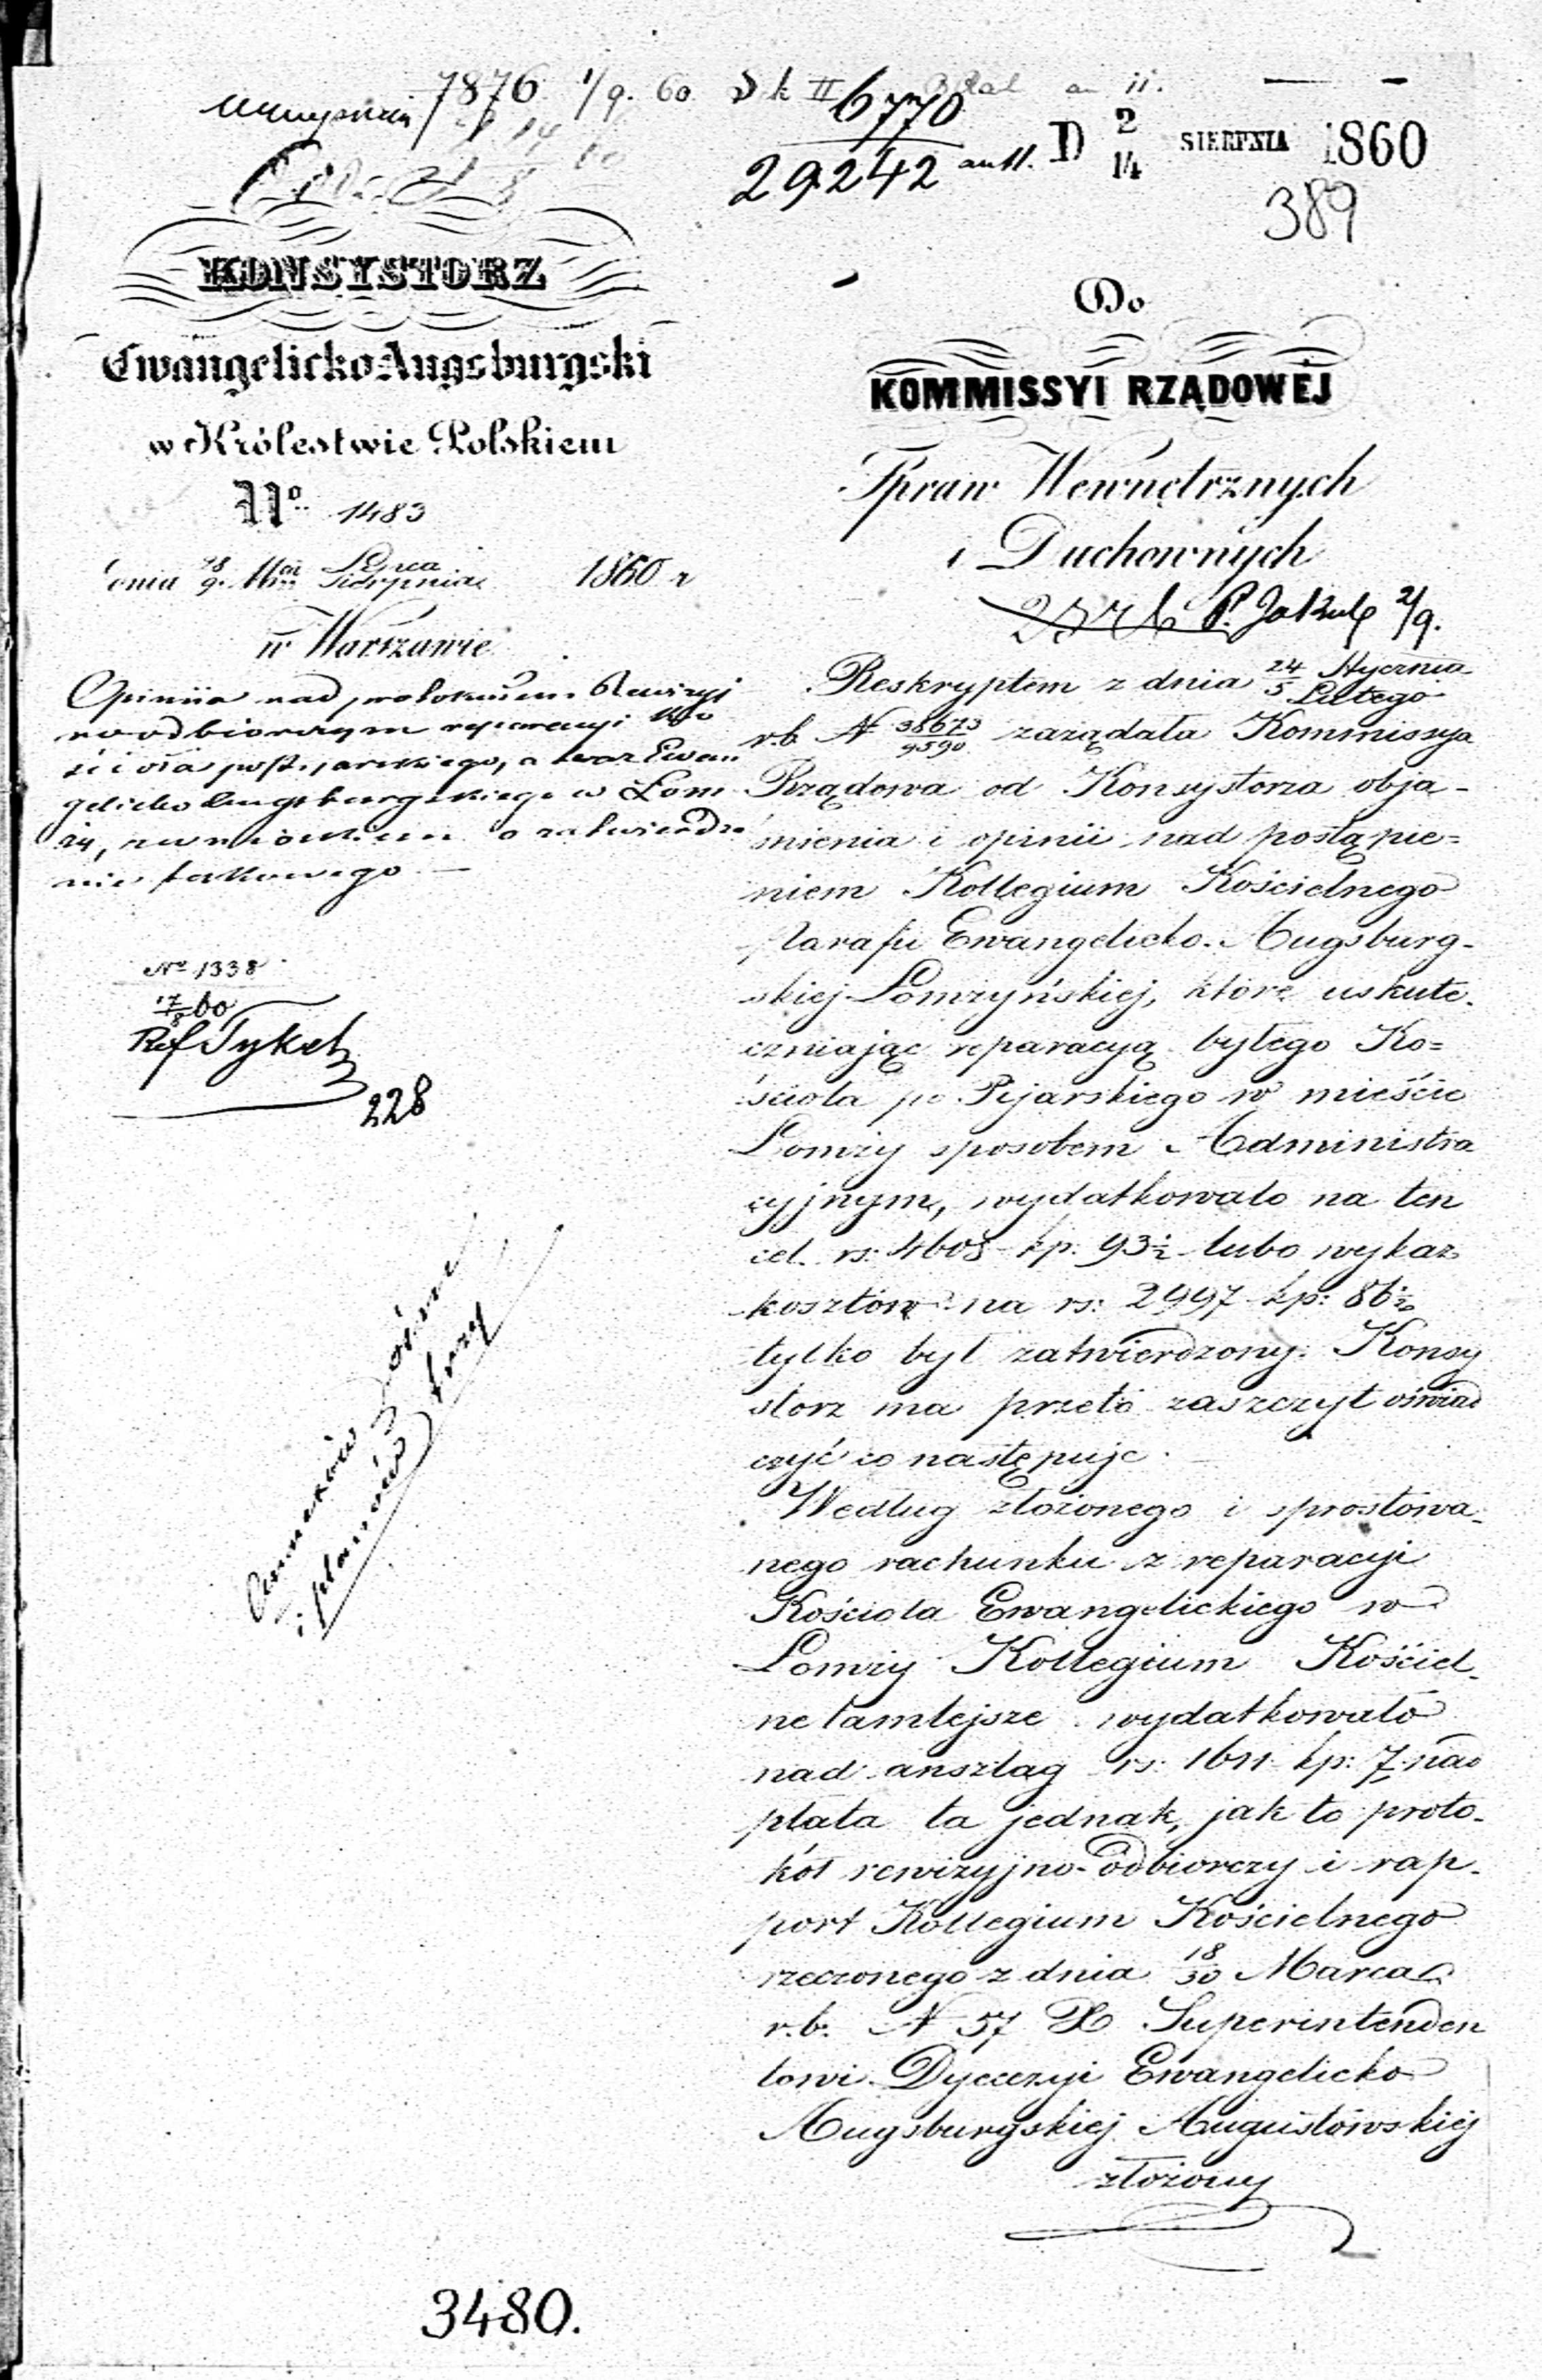 7876 1/9. 60 D k II
6770
29242 au 11.
D 2/14 SIERPNIA 1860
389
KONSYSTORZ
Ewangelicko Augsburgski
w Królestwie Polskiem
No. 1483
dnia 28/9. Mca Lipca/Sierpnia 1860 r
w Warszawie
Opinija nad protokułem Rewizyj
no odbiorczym reparacyi Ko
ścioła post. pijarskiego, a teraz Ewan
gelicko Augsburgskiego w Łom
ży, z wnioskiem o zatwierdze
nie takowego —
No 1338
17/8 60
Ref Tykel
228
Anneksów
i planów trzy
3480.
Do
KOMMISSYI RZĄDOWEJ
Spraw Wewnętrznych
i Duchownych
P. Jakub 2/9.
Reskryptem z dnia 24 Stycznia/5 Lutego
r.b. N 38673/9590 zażądała Kommissya
Rządowa od Konsystorza obja-
śnienia i opinii nad postąpie=
niem Kollegium Kościelnego
Parafii Ewangelicko-Augsburg-
skiej Łomżyńskiej, które uskute-
czniając reparacyą byłego Ko=
ścioła po Pijarskiego w mieście
Łomży sposobem Administra
cyjnym, wydatkowało na ten
cel rs: 4608 kp: 93½ lubo wykaz
kosztów na rs: 2997 kp: 86½
tylko był zatwierdzony. Konsy
storz ma przeto zaszczyt oświad
czyć co następuje.
Według złożonego i sprostowa-
nego rachunku z reparacyi
Kościoła Ewangelickiego w
Łomży Kollegium Kościel-
ne tamtejsze wydatkowało
nad anszlag rs: 1611 kp: 7. nad
płata ta jednak, jak to proto-
kół rewizyjno-odbiorczy i rap-
port Kollegium Kościelnego
rzeczonego z dnia 18/30 Marca
r.b. N 57 X Superintenden
towi Dyecezyi Ewangelicko
Augsburgskiej Augustowskiej
złożony